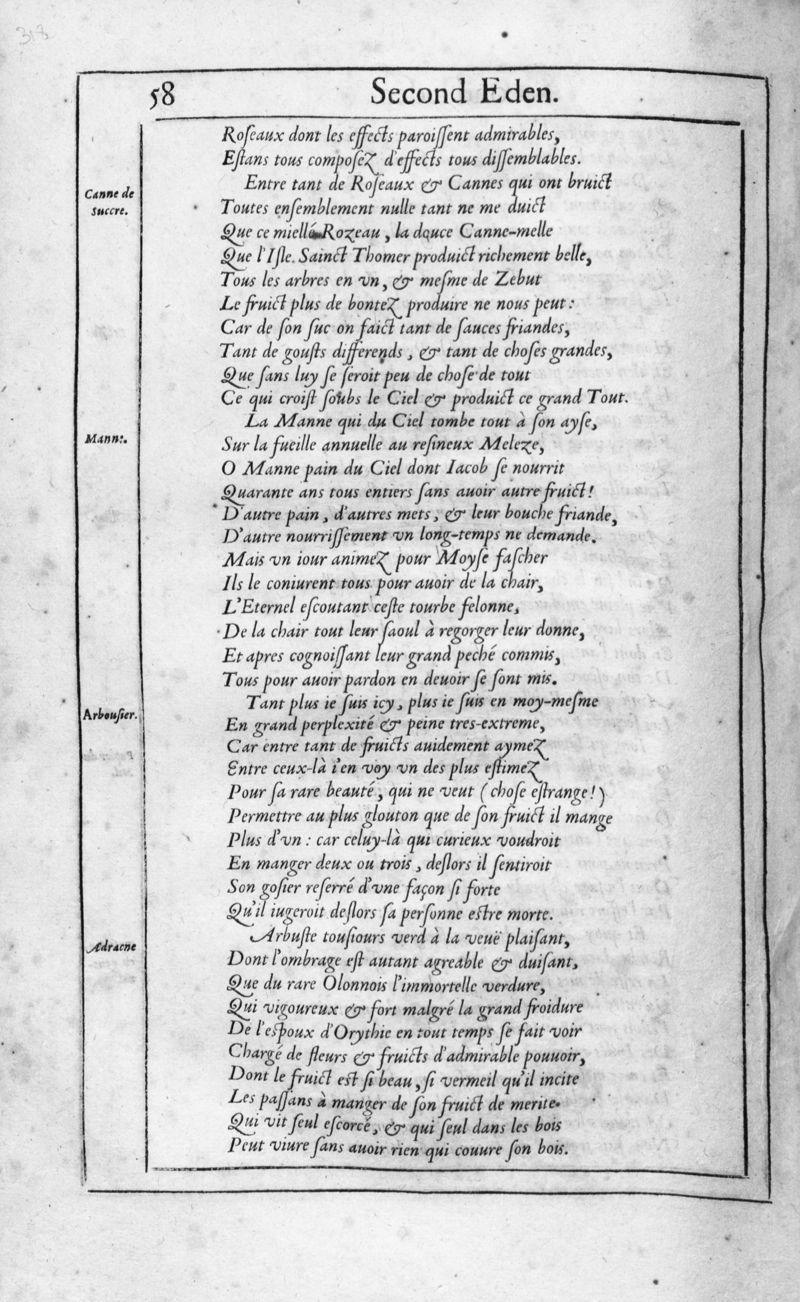 318
58 Second Eden.
Roſeaux dont les effects paroiſſent admirables,
Eſtans tous compoſez d'effects tous diſſemblables.
Entre tant de Roſeaux & Cannes qui ont bruict
Canne de Succre.
Toutes enſemblement nulle tant ne me duict
Que ce miellé Rozeau, la douce Canne-melle
Que l'Iſle Sainct Thomer produict richement belle,
Tous les arbres en vn, & meſme de Zebut
Le fruict plus de bontez produire ne nous peut :
Car de ſon ſuc on faict tant de ſauces friandes,
Tant de gouſts differends, & tant de choſes grandes,
Que ſans luy ſe ſeroit peu de choſe de tout
Ce qui croiſt ſoubs le Ciel & produict ce grand Tout.
La Manne qui du Ciel tombe tout à ſon ayſe,
Manne.
Sur la fueille annuelle au reſineux Meleze,
O Manne pain du Ciel dont Iacob ſe nourrit
Quarante ans tous entiers ſans auoir autre fruict !
D'autre pain, d'autres mets, & leur bouche friande,
D'autre nourriſſement vn long-temps ne demande.
Mais vn iour animez pour Moyſe faſcher
Ils le coniurent tous pour auoir de la chair,
L'Eternel eſcoutant ceſte tourbe felonne,
De la chair tout leur ſaoul à regorger leur donne,
Et apres cognoiſſant leur grand peché commis,
Tous pour auoir pardon en deuoir ſe ſont mis.
Tant plus ie ſuis icy, plus ie ſuis en moy-meſme
Arbouſier.
En grand perplexité & peine tres-extreme,
Car entre tant de fruicts auidement aymez
Entre ceux-là i'en voy vn des plus eſtimez
Pour ſa rare beauté, qui ne veut (choſe eſtrange !)
Permettre au plus glouton que de ſon fruict il mange
Plus d'vn : car celuy-là qui curieux voudroit
En manger deux ou trois, deſlors il ſentiroit
Son goſier reſerré d'vne façon ſi forte
Qu'il iugeroit deſlors ſa perſonne eſtre morte.
Adracne
Arbuſte touſiours verd à la veuë plaiſant,
Dont l'ombrage eſt autant agreable & duiſant,
Que du rare Olonnois l'immortelle verdure,
Qui vigoureux & fort malgré la grand froidure
De l'eſpoux d'Orythie en tout temps ſe fait voir
Chargé de fleurs & fruicts d'admirable pouuoir,
Dont le fruict eſt ſi beau, ſi vermeil qu'il incite
Les paſſans à manger de ſon fruict de merite.
Qui vit ſeul eſcorcé, & qui ſeul dans les bois
Peut viure ſans auoir rien qui couure ſon bois.